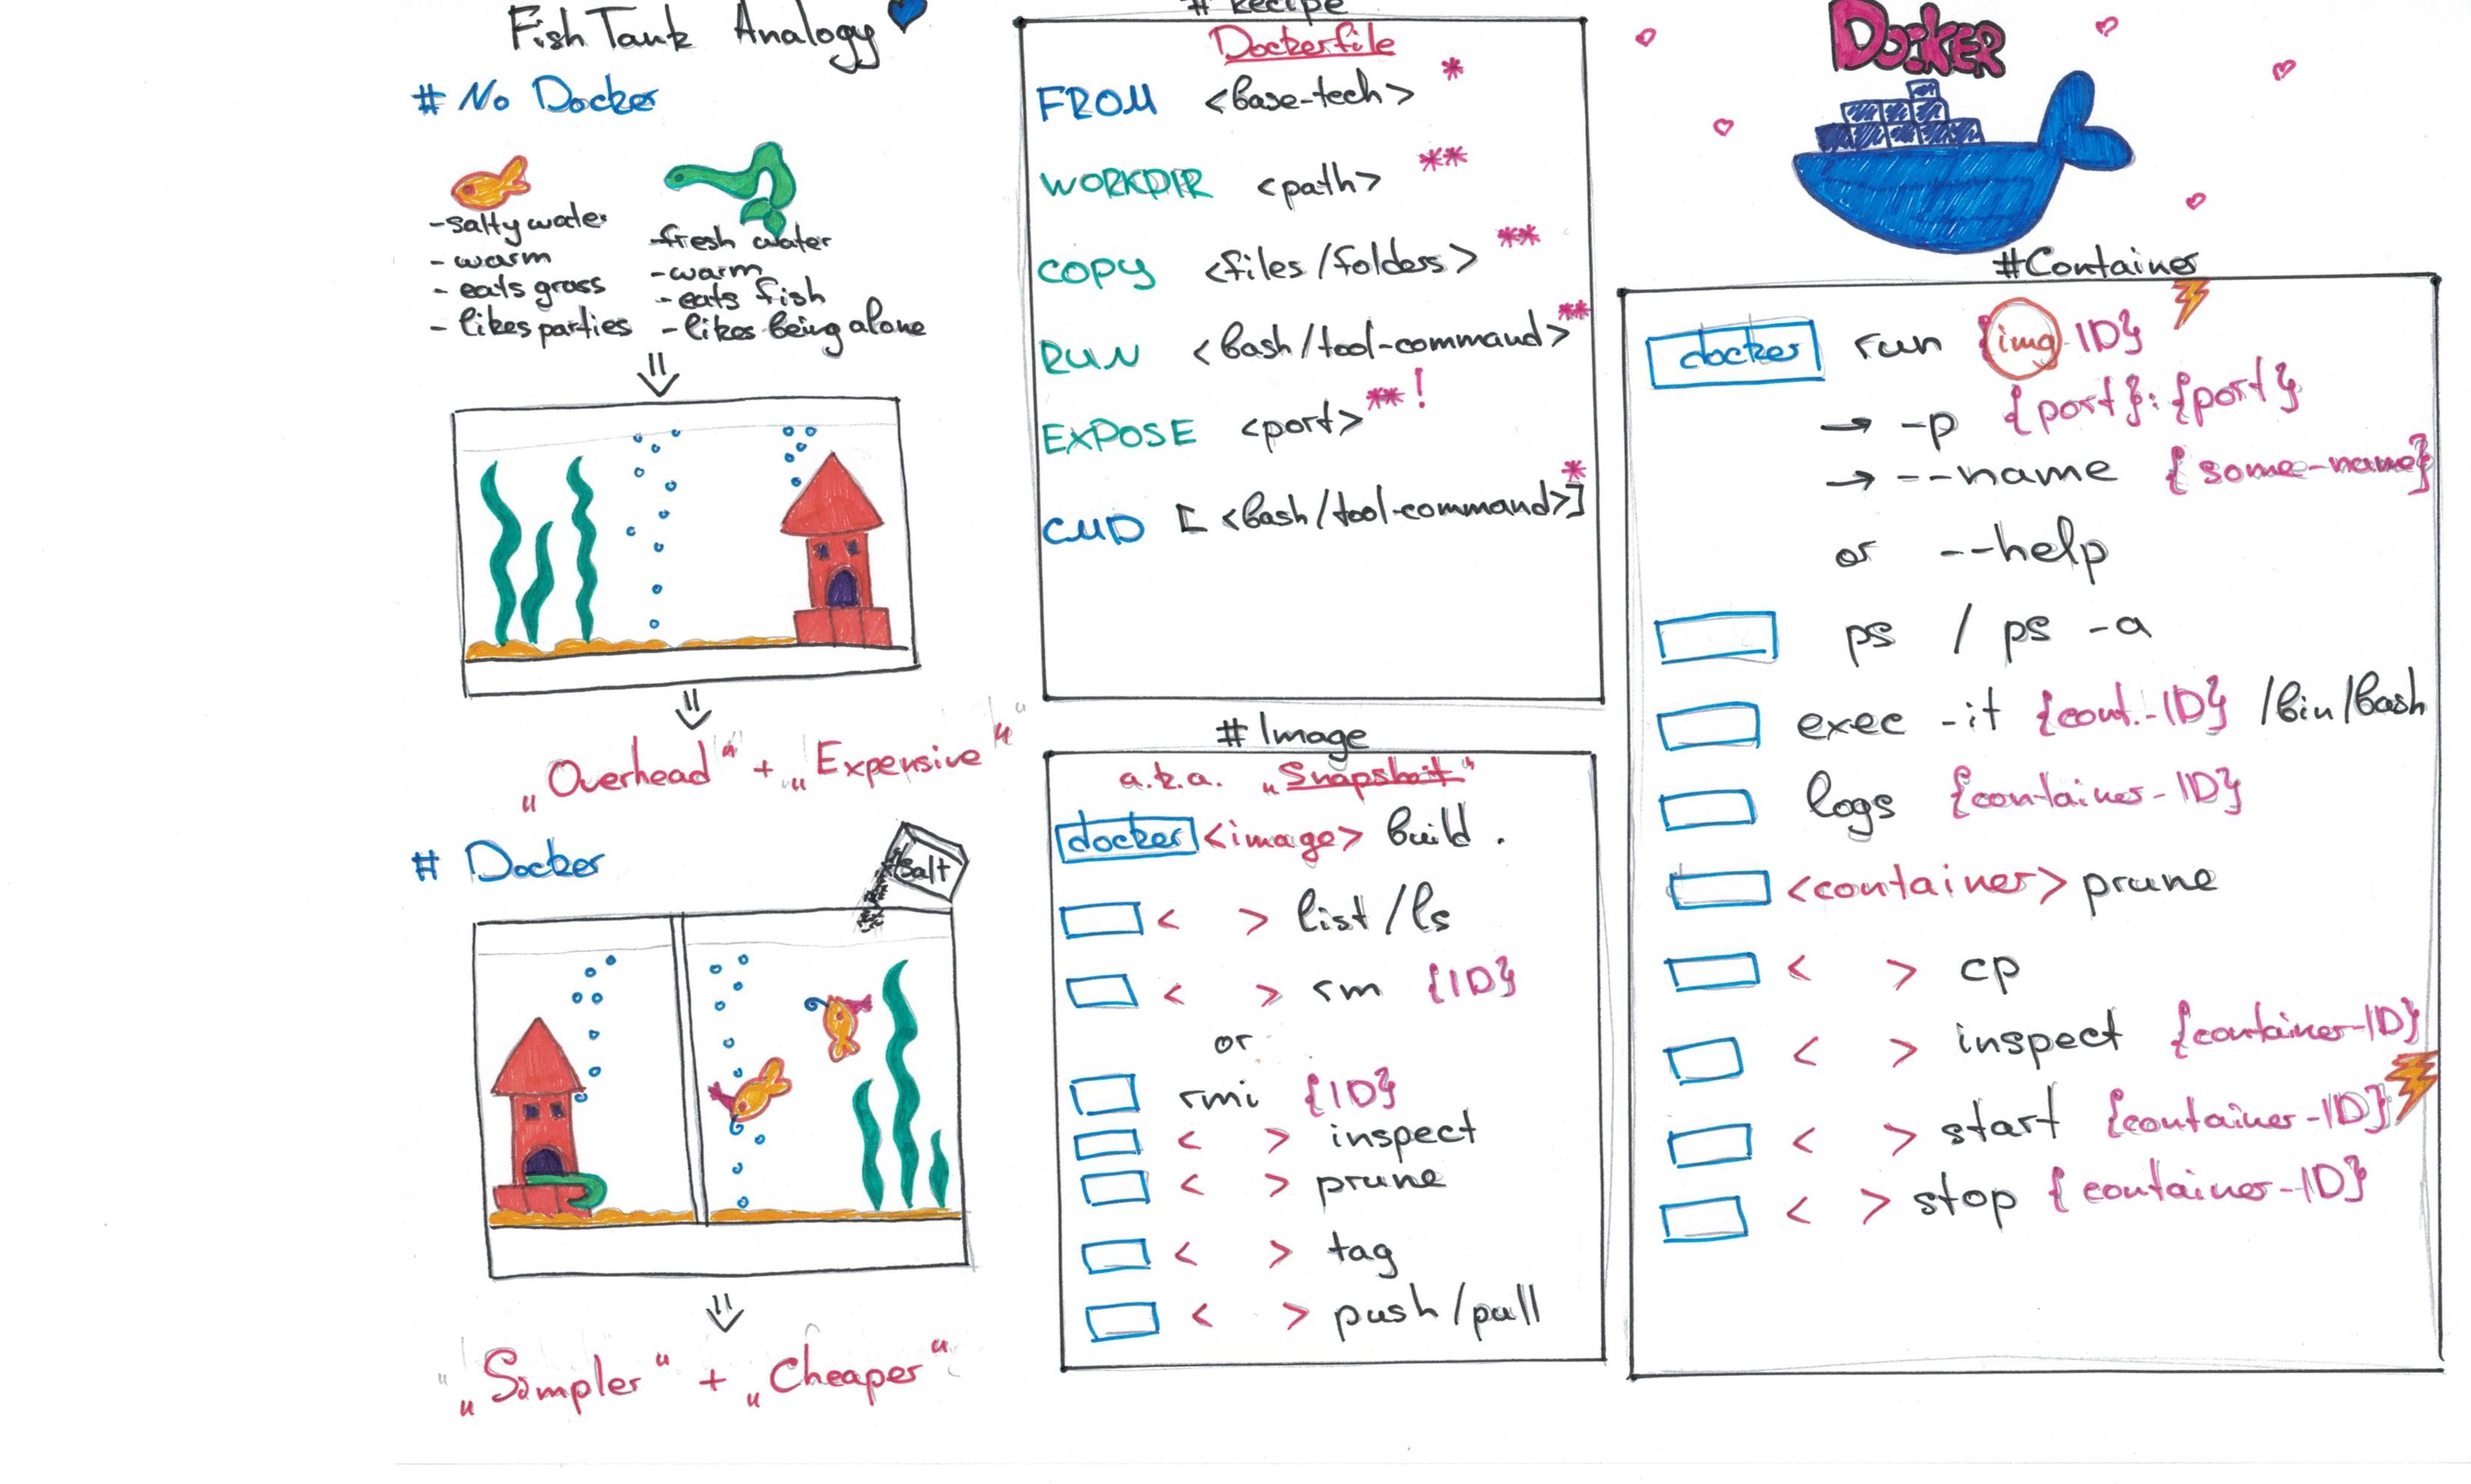 Fish Tank Analogy
# No Docker
- salty water
- warm
- eats grass
- likes parties
- fresh water
- warm
- eats fish
- likes being alone
„Overhead“ + „Expensive“
# Docker
Salt
„Simpler“ + „Cheaper“
# Recipe
Dockerfile
FROM <base-tech> *
WORKDIR <path> **
COPY <files/folders> **
RUN <bash/tool-command> **
EXPOSE <port> ** !
CMD [ <bash/tool-command>] *
# Image
a.k.a. „Snapshot“
docker <image> build .
< > list/ls
< > rm {ID}
or
rmi {ID}
< > inspect
< > prune
< > tag
< > push/pull
DOCKER
#Container
docker run {img ID}
→ -p {port}:{port}
→ --name {some-name}
or --help
ps / ps -a
exec -it {cont.-ID} /bin/bash
logs {container-ID}
<container> prune
< > cp
< > inspect {container-ID}
< > start {container-ID}
< > stop {container-ID}